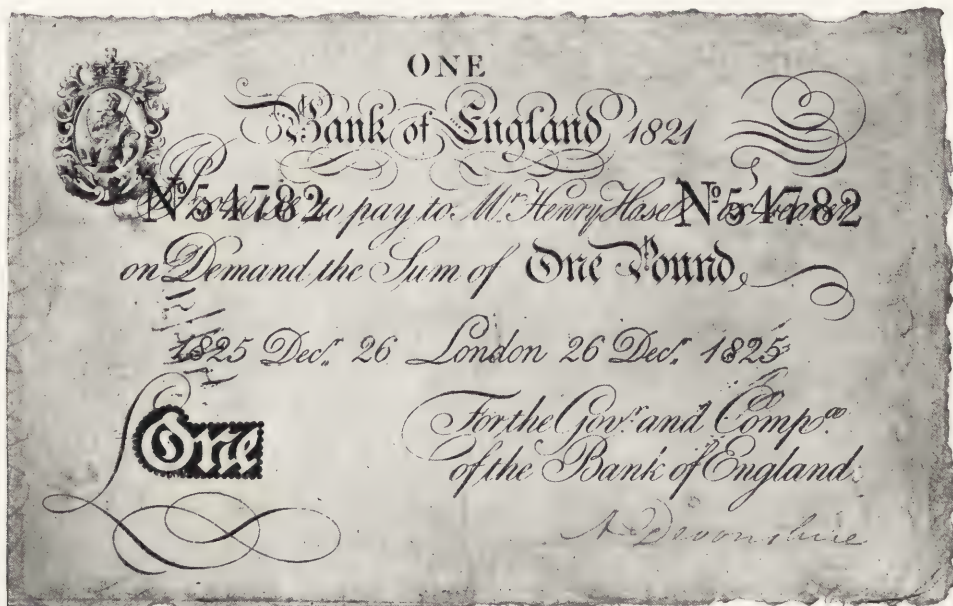 ONE
Bank of England 1821
Nº 54782 to pay to Mr. Henry Hase Nº 54782
on Demand the Sum of One Pound,
1825 Decr. 26 London 26 Decr. 1825
£One
For the Govr. and Compa.
of the Bank of England.
A Devonshire